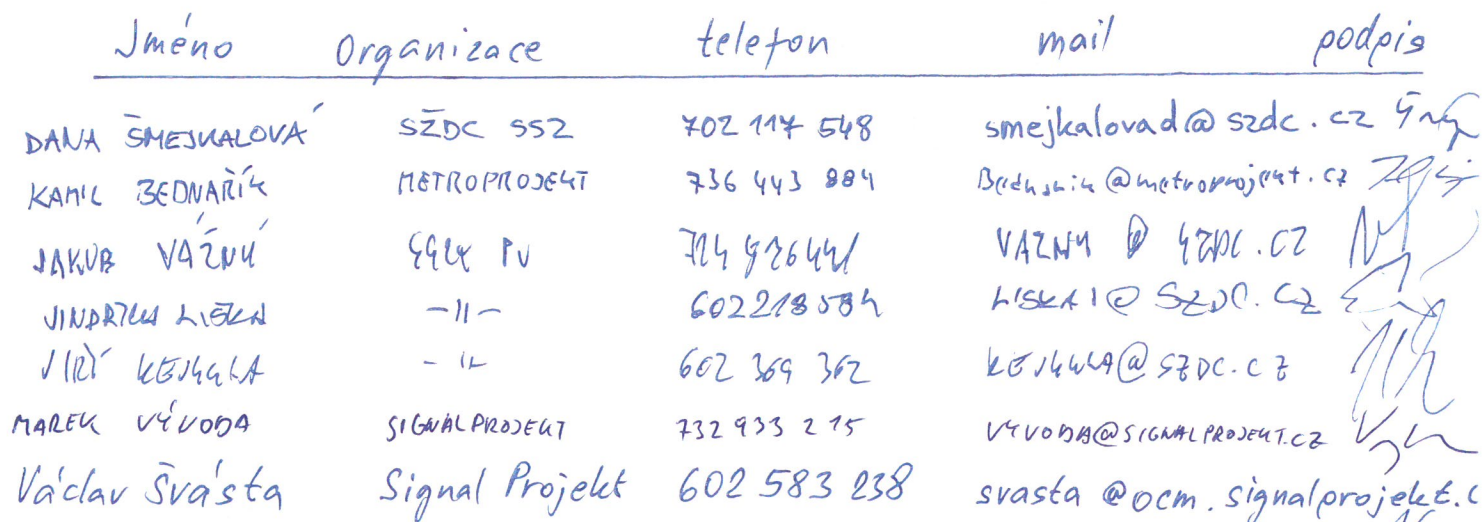 Jméno Organizace telefon mail podpis
DANA ŠMEJKALOVÁ SŽDC SSZ 702 117 548 smejkalovad@szdc.cz
KAMIL BEDNAŘÍK METROPROJEKT 736 443 884 @metroprojekt.cz
JAKUB VÁŽNÝ VAZNY @ SZDC.CZ
LIŠKA -11- LISKAI@SZDC.CZ
JIŘÍ 602 369 362 @SZDC.CZ
MAREK VÝVODA SIGNALPROJEKT 732 933 215 VYVODA@SIGNALPROJEKT.CZ
Václav Švásta Signal Projekt 602 583 238 svasta@ocm.signalprojekt.c